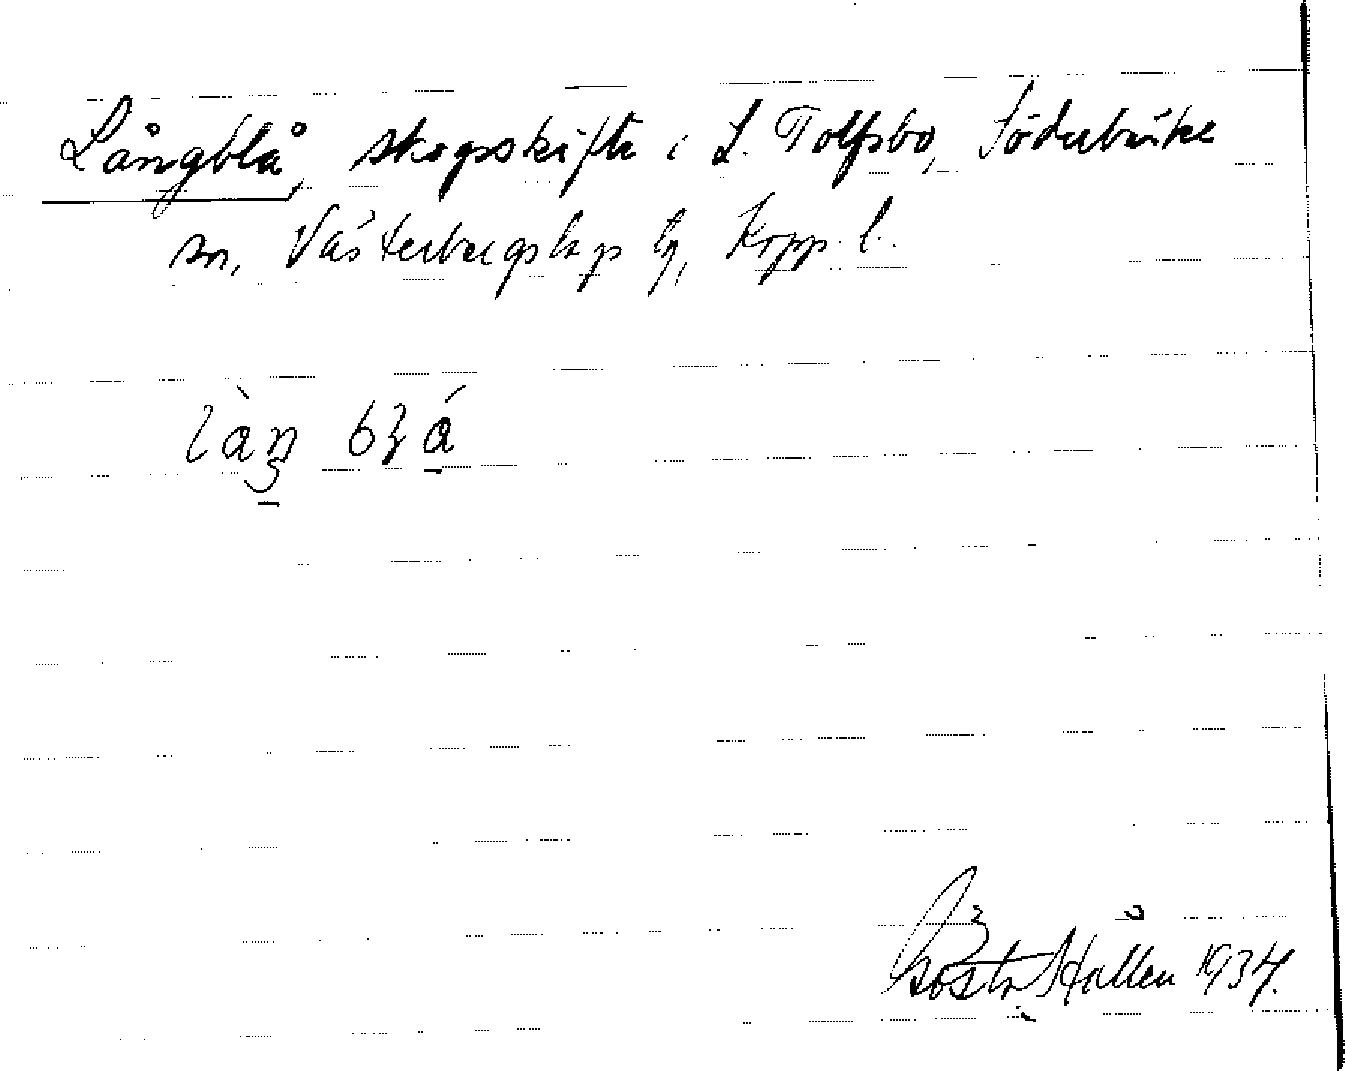 Långblå, skogsskifte i L. Tolfsbo, Söderbärke
sn, Västerbergslags tg, Kopp. l.
Gösta Hållén 1934.